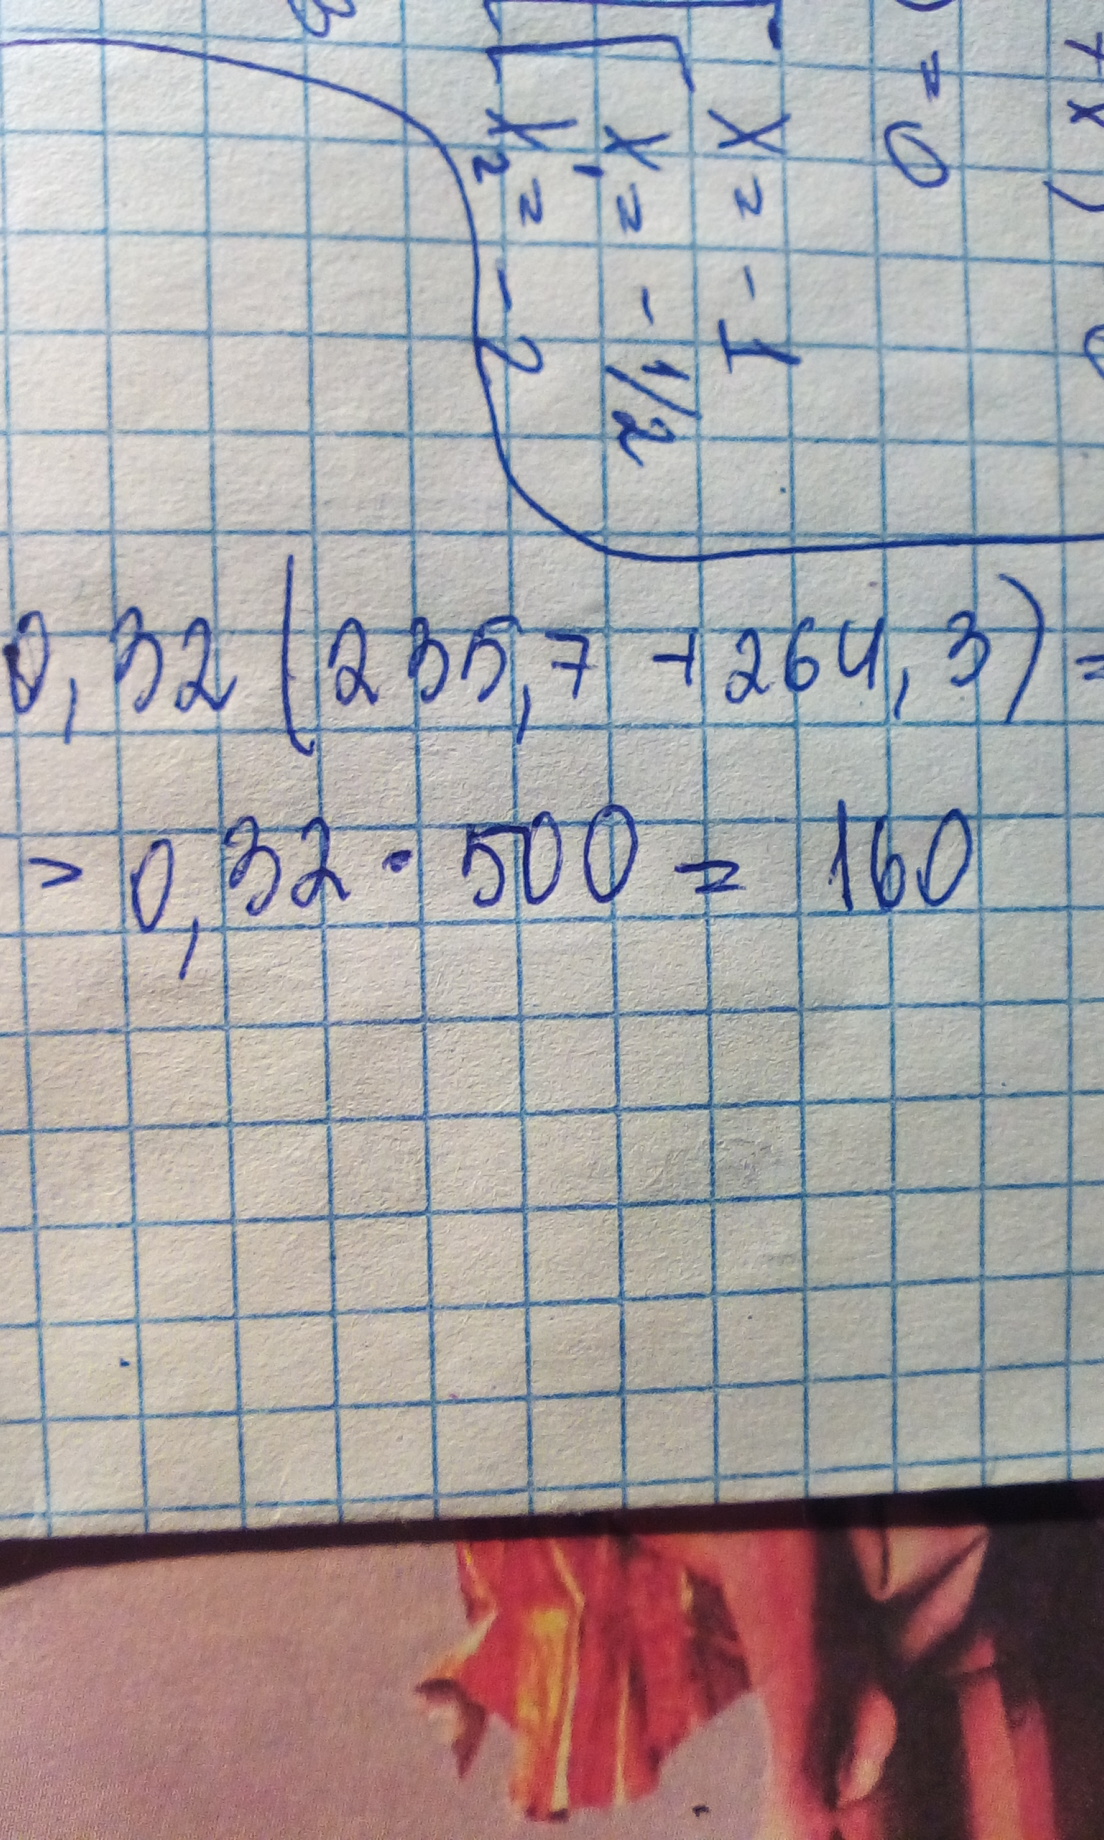 = 0
x = -1
x₁ = -1/2
x₂ = -2
0,32 (235,7 + 264,3) =
= 0,32 · 500 = 160